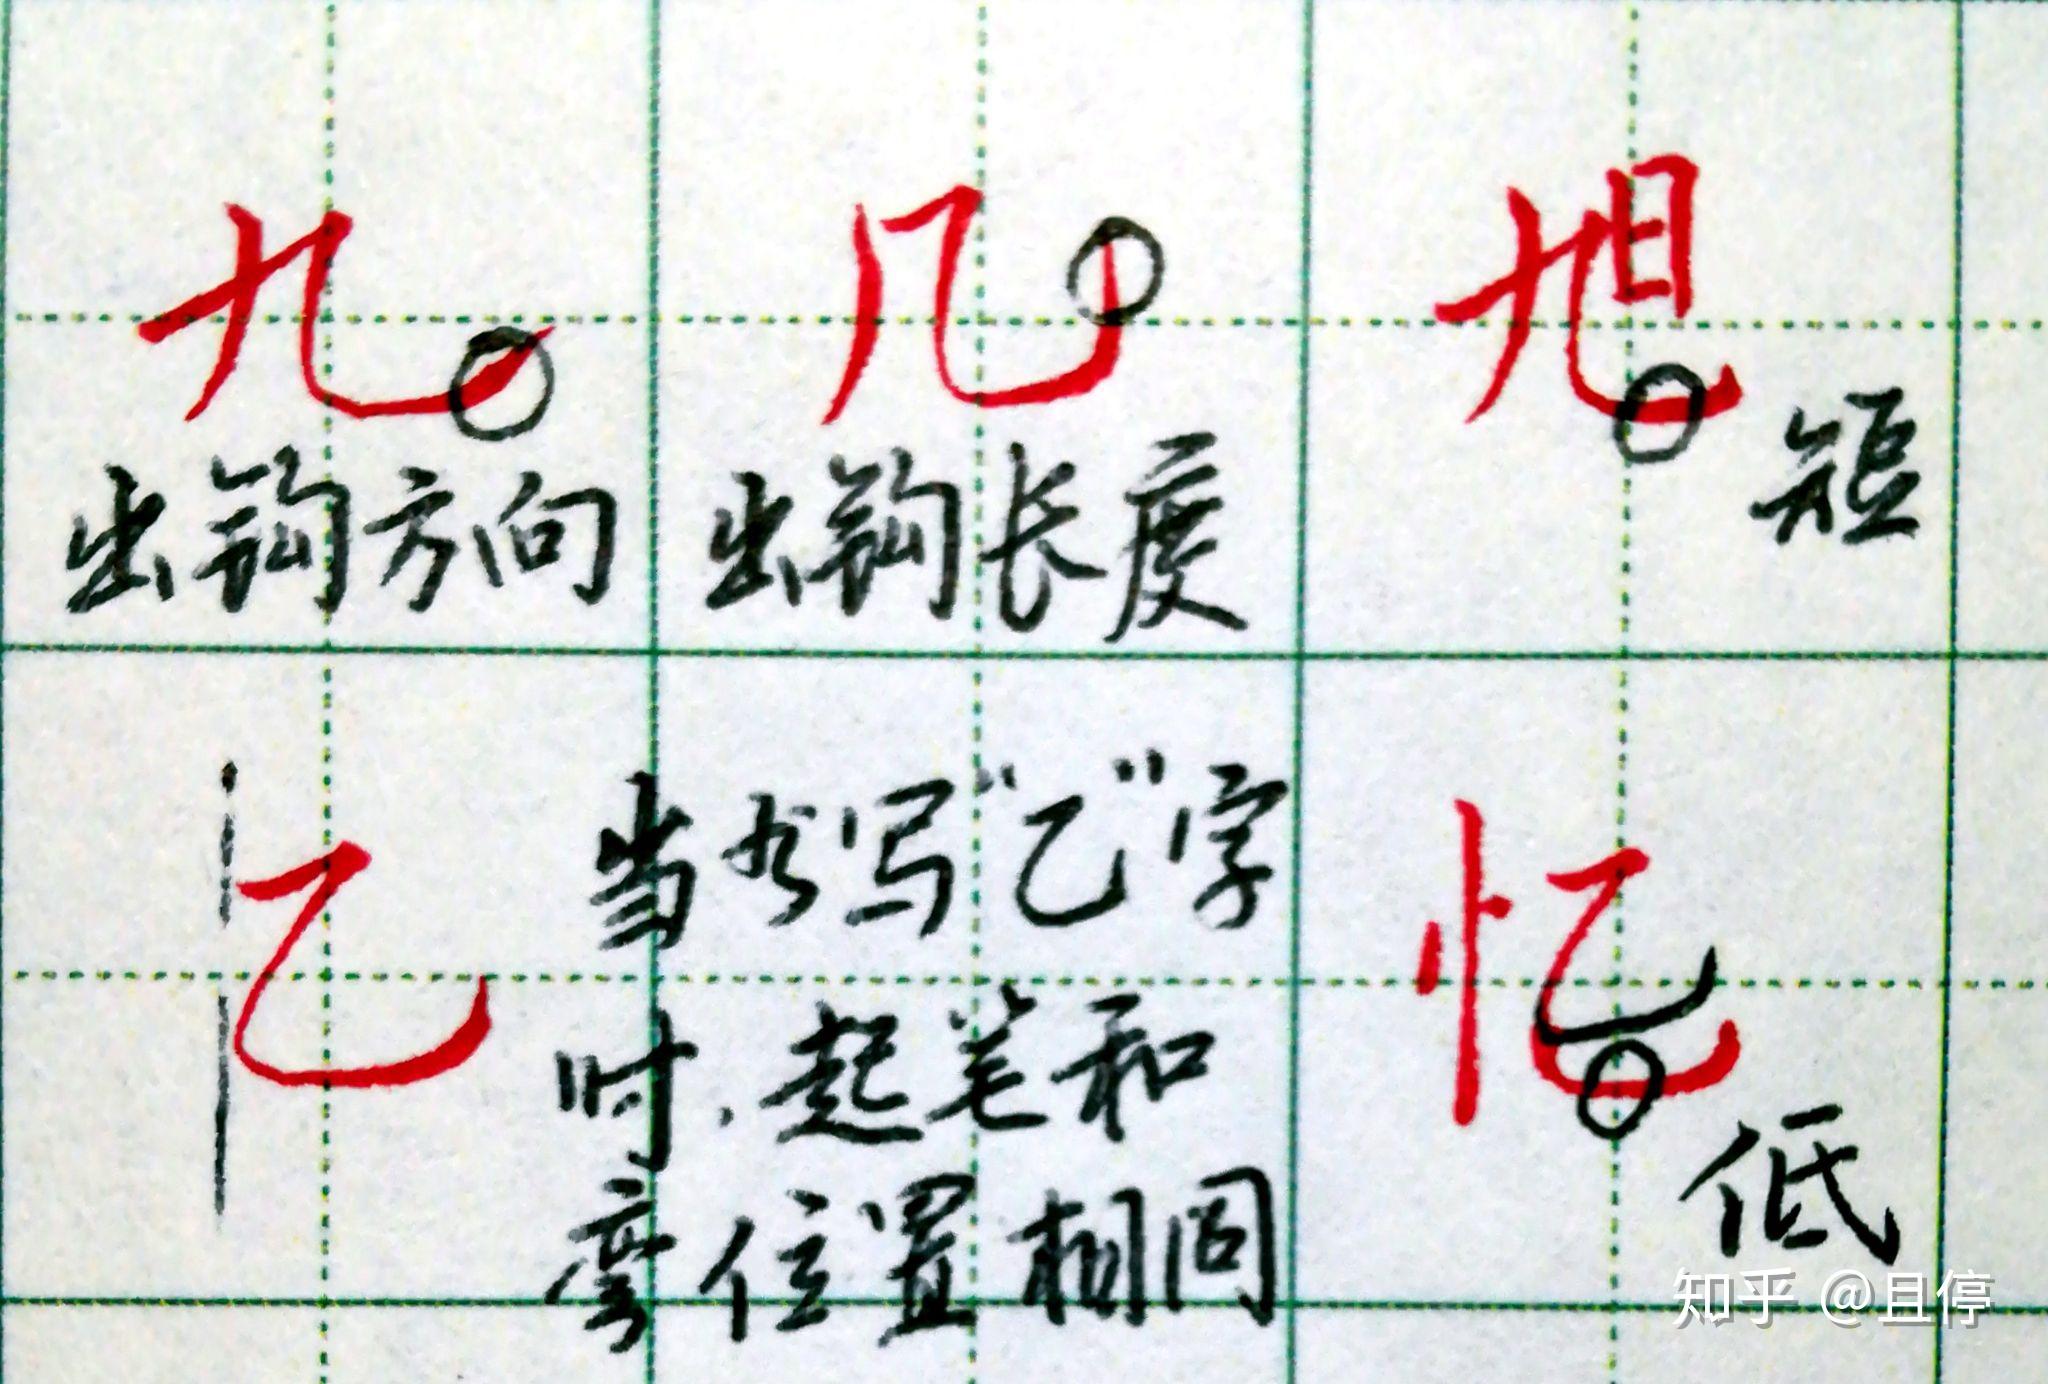 九 几 旭
出钩方向 出钩长度 短
乙 当写“乙”字 忆
时,起笔和
弯位置相同 低
知乎 @且停